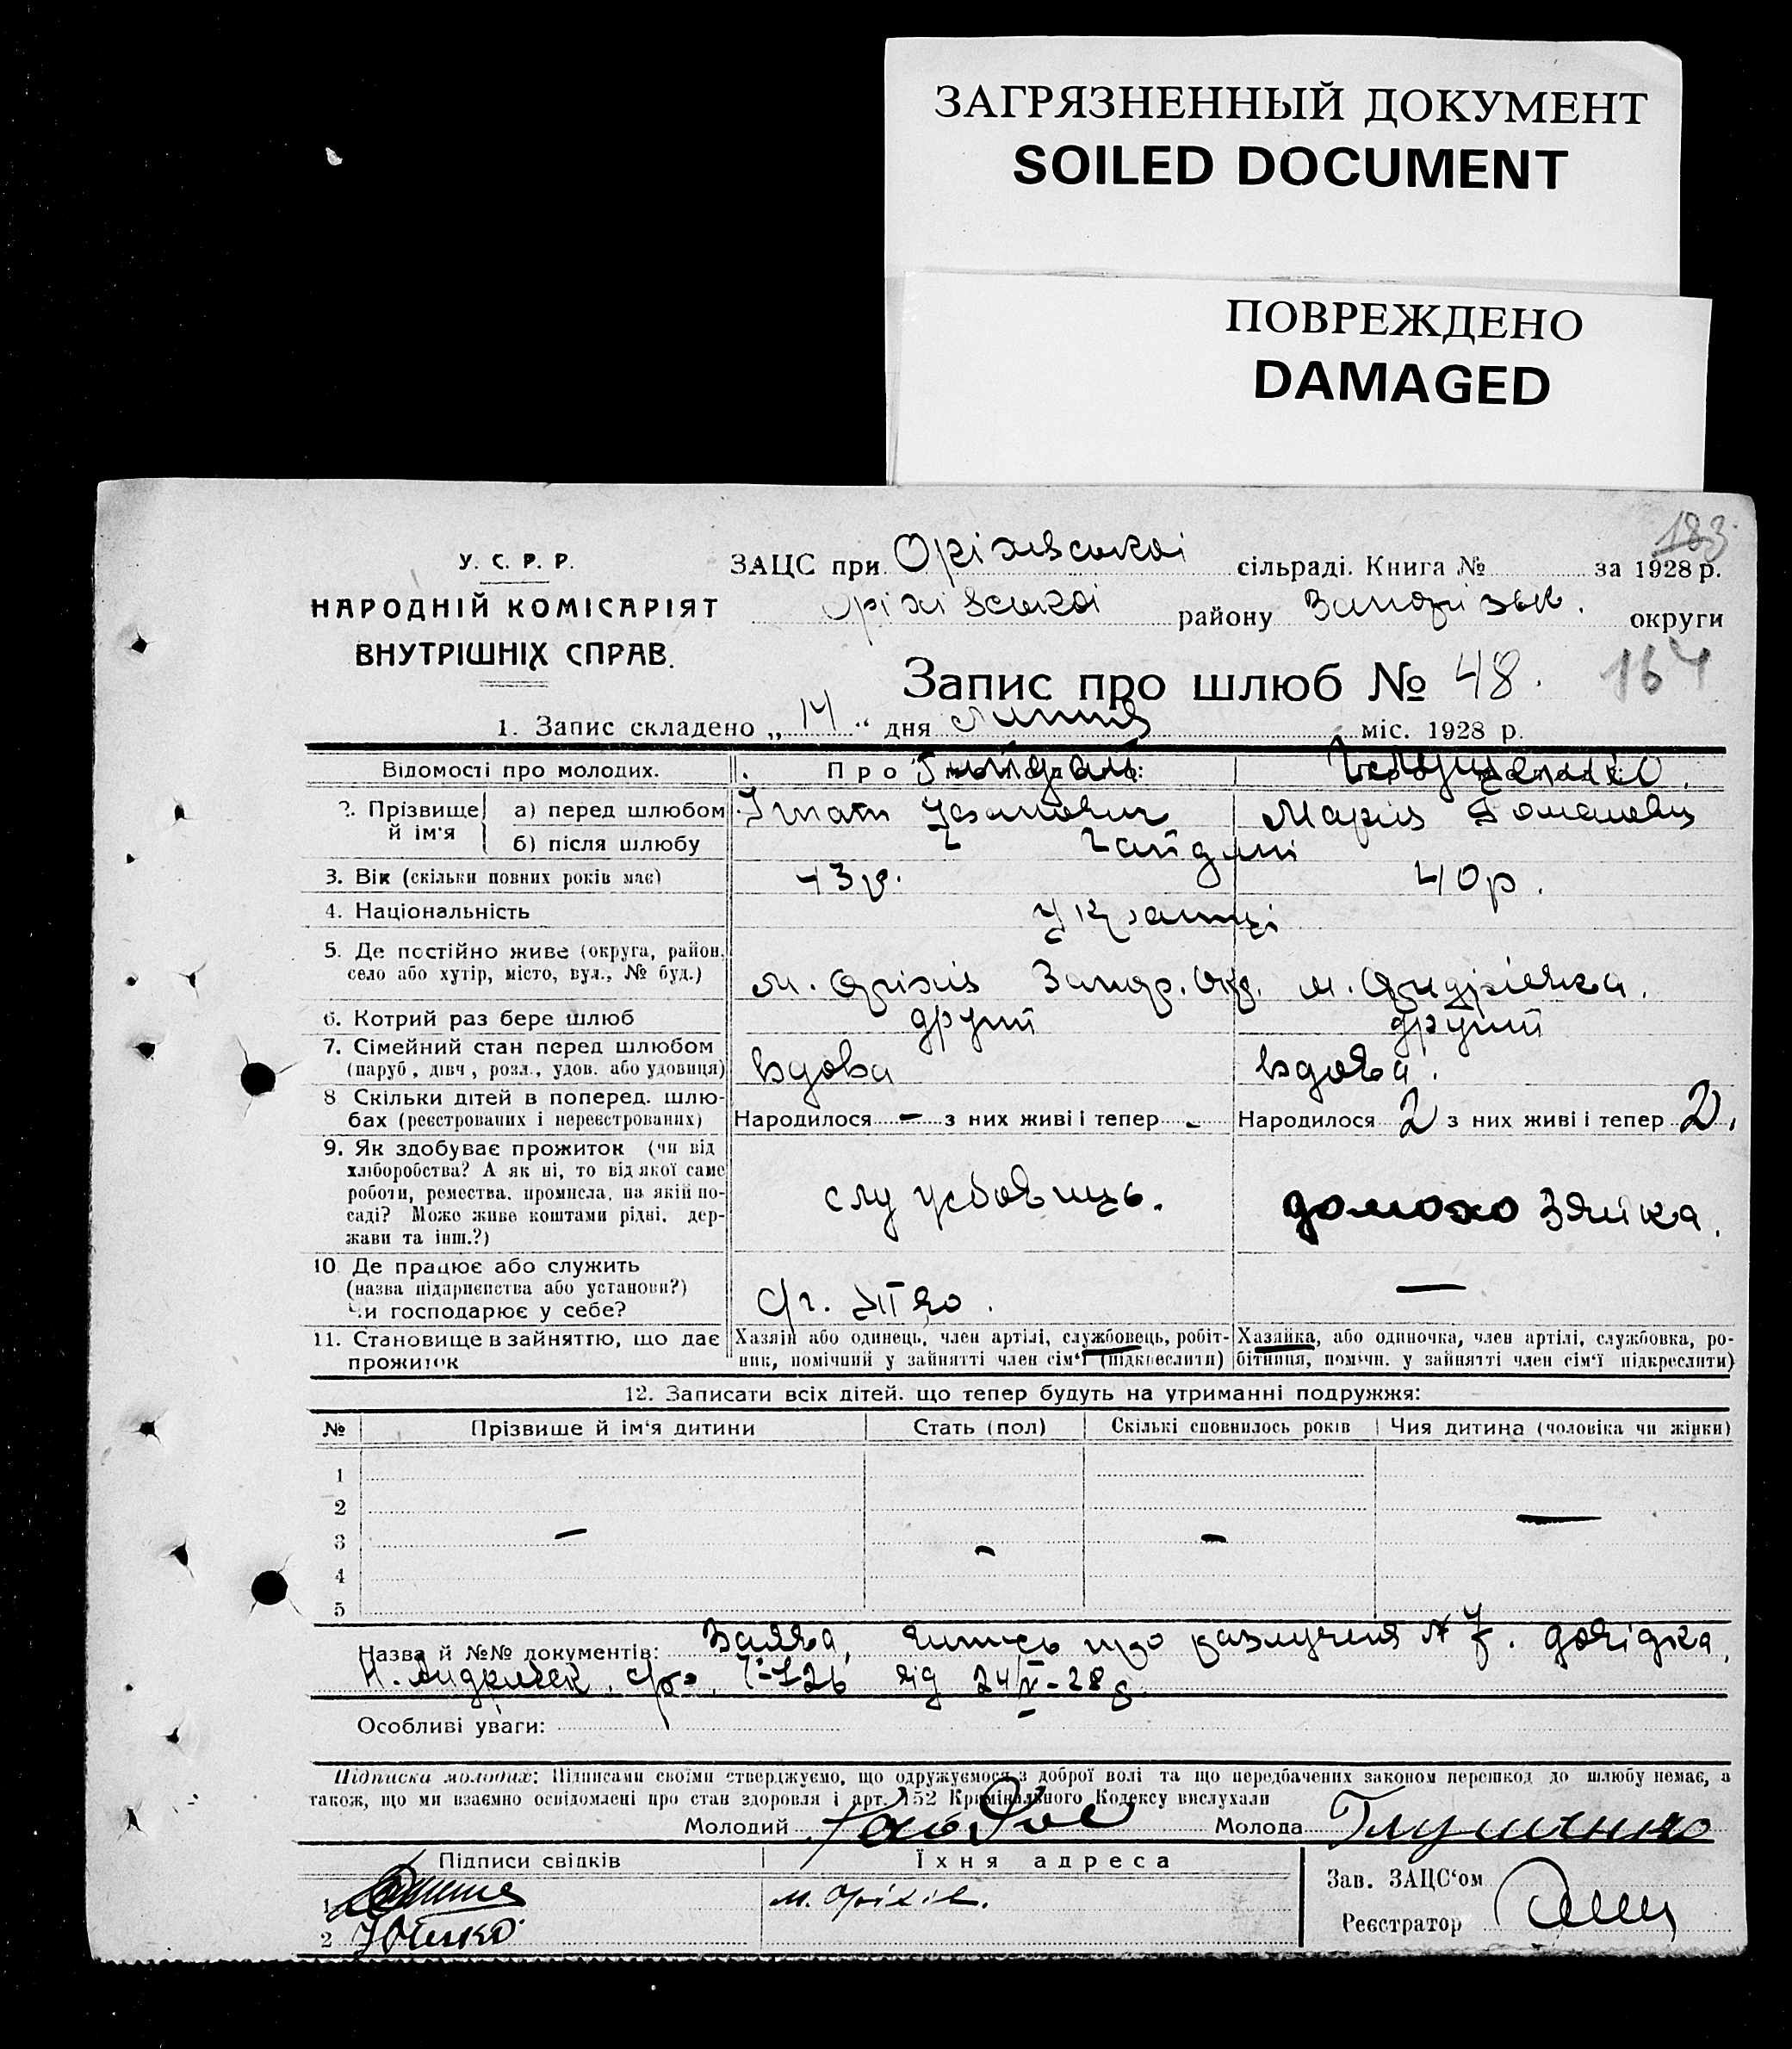 ЗАГРЯЗНЕННЫЙ ДОКУМЕНТ
SOILED DOCUMENT
ПОВРЕЖДЕНО
DAMAGED
183
У. С. Р. Р.
НАРОДНІЙ КОМІСАРІЯТ
ВНУТРІШНІХ СПРАВ.
ЗАЦС при Оріхівській сільраді. Книга № за 1928 р.
Оріхівської району Запорізьк. округи
Запис про шлюб № 48. 164
1. Запис складено „14“ дня Липня міс. 1928 р.
Відомості про молодих. Про
2. Прізвище й ім'я а) перед шлюбом Гнат Марія
б) після шлюбу Гайдані
3. Вік (скільки повних років має) 43 р. 40 р.
4. Національність Українці
5. Де постійно живе (округа, район, село або хутір, місто, вул., № буд.) м. Оріхів Запор. Окр. м. Андріївка.
6. Котрий раз бере шлюб другий другий
7. Сімейний стан перед шлюбом (паруб., дівч., розл., удов. або удовиця) вдова вдова.
8 Скільки дітей в поперед. шлюбах (реєстрованих і нереєстрованих) Народилося - з них живі і тепер - Народилося 2 з них живі і тепер 2.
9. Як здобуває прожиток (чи від хліборобства? А як ні, то від якої саме роботи, ремества, промисла, на якій посаді? Може живе коштами рідні, держави та інш.?) службовець. домохозяйка.
10 Де працює або служить (назва підприємства або установи?) Чи господарює у себе? с/г. —
11. Становище в зайняттю, що дає прожиток Хазяін або одинець, член артілі, службовець, робітник, помічний у зайнятті член сім'ї (підкреслити) Хазяйка, або одиночка, член артілі, службовка, робітниця, помічн. у зайнятті член сім'ї підкреслити)
12. Записати всіх дітей, що тепер будуть на утриманні подружжя:
№ Прізвище й ім'я дитини Стать (пол) Скількі сповнилось років Чия дитина (чоловіка чи жінки)
1
2
3
4
5
Назва й №№ документів: Заява, випись про разлучення № 7. довідка,
Н. Андріївск. с/р. від 24/V-28 р.
Особливі уваги:
Підписка молодих: Підписами своїми стверджуємо, що одружуємося з доброї волі та що передбачених законом перешкод до шлюбу немає, а
також, що ми взаємно освідомлені про стан здоровля і арт. 152 Кримінального Кодексу вислухали
Молодий Молода Глущенко
Підписи свідків Їхня адреса
Зав. ЗАЦС'ом
1 м. Оріхів.
Реєстратор
2